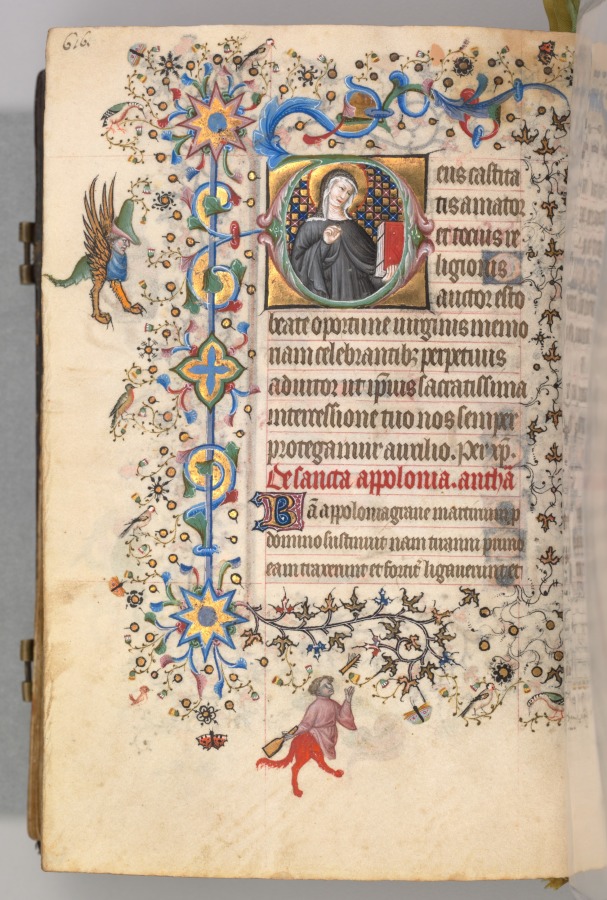 616.
eus castita
tis amator
et tocius re
ligionis
auctor esto
beate oportune uirginis memo
riam celebrantibȝ perpetuus
adiutor ut ip̄uis sacratissima
intercessione tuo nos semper
protegamur auxilio. Per xp̄.
De sancta appolonia. anth̄a
Bā appolonia graue martirium p
domino sustinuit nam tiranni primo
eam traxerunt et fortit̄ ligauerunt et